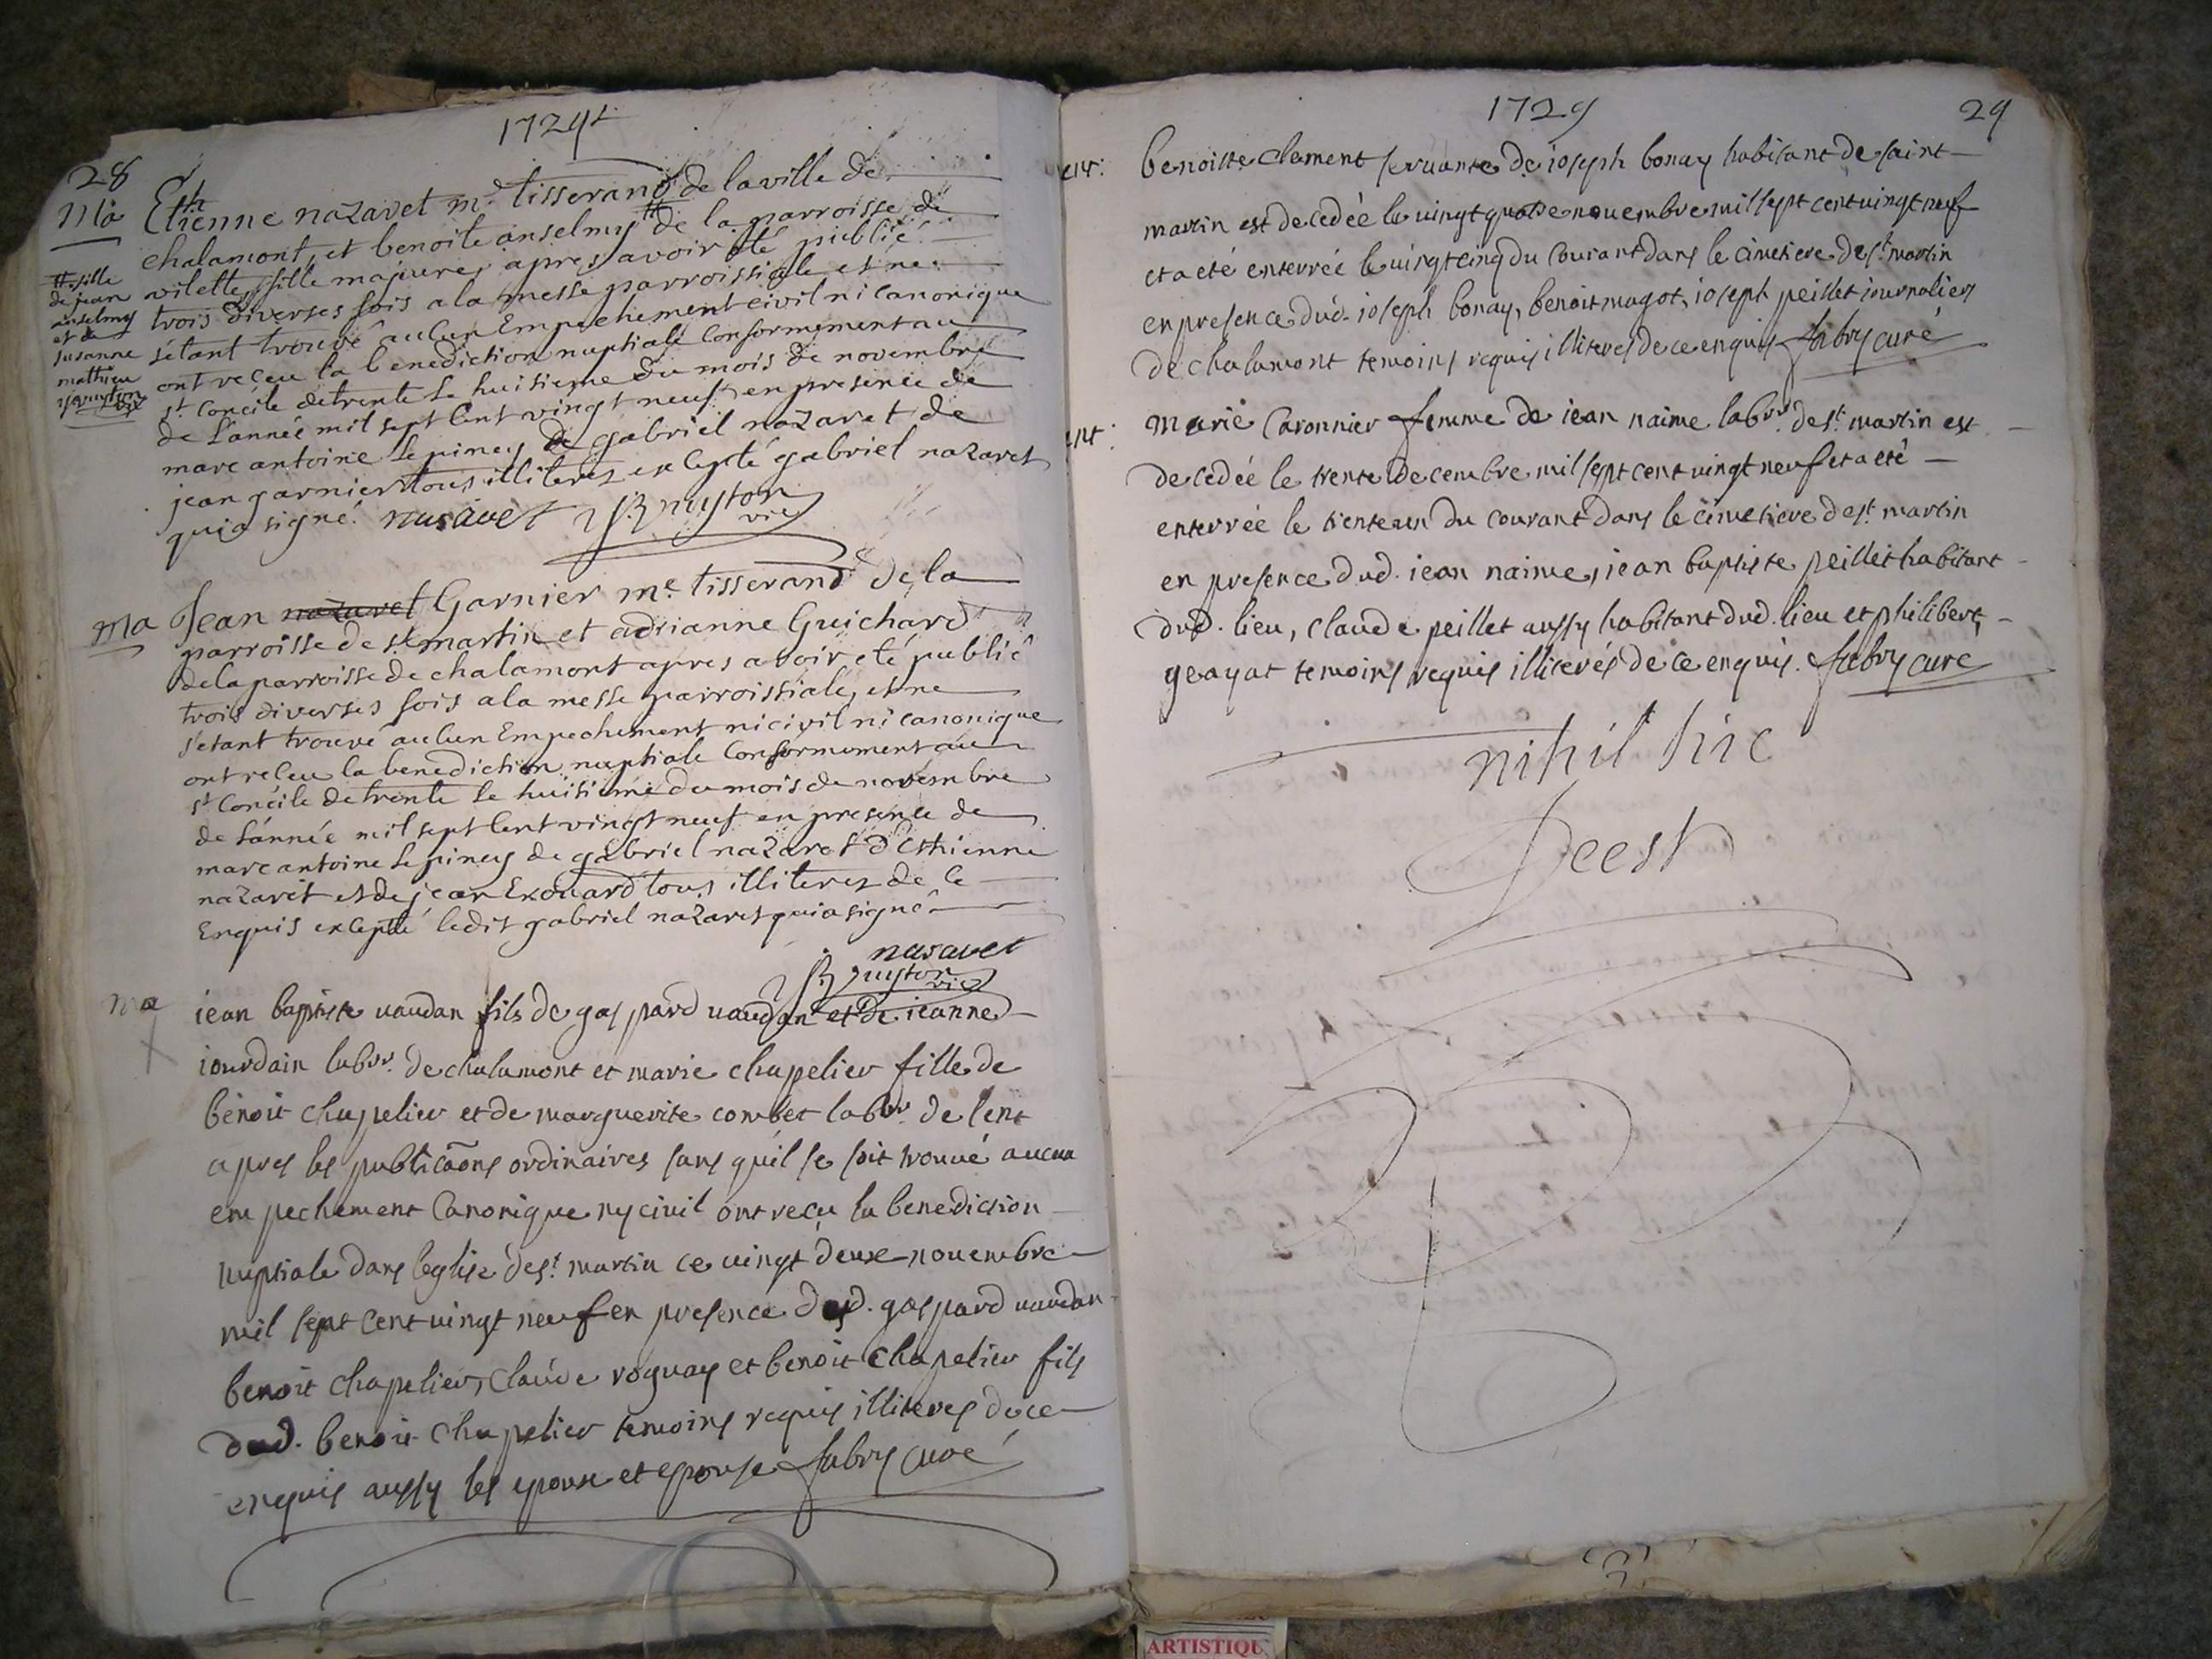 28
1729
Ma Ethienne nazaret m.e tisserand de la ville de
chalamont, et benoite anselmy # de la parroisse de
vilette, fille majeure, apres avoir été publié
trois diverses fois a la messe parroissiale et ne
s'étant trouvé aucun Empechement civil ni canonique
ont reçeu la benediction nuptiale Conformement au
st Concile de trente le huitieme du mois de novembre
de l'année mil sept Cent vingt neuf en presence de
marc antoine lepiney de gabriel nazaret de
jean garnier tous illiterez excepté gabriel nazaret
qui a signé. nasavet
vic
# fille
de jean
anselmy
et de
susanne
mathieu
Ma Jean nazaret Garnier m.e tisserand de la
parroisse de st martin et adrianne Guichard
de la parroisse de chalamont apres avoir eté publié
trois diverses fois a la messe parroissiale, et ne
s'etant trouvé aucun Empechement ni civil ni canonique
ont reçeu la benediction nuptiale Conformement au
st Concile de trente le huitieme du mois de novembre
de l'année mil sept Cent vingt neuf en presence de
marc antoine lepiney de gabriel nazaret d'Esthienne
nazaret et de jean Exouard tous illiterez de Ce
Enquis excepté ledit gabriel nazaret qui a signé
nasavet
vic
ma iean baptiste vaudan fils de gaspard vaudan et de ieanne
iourdain labr. de chalamont et marie chapelier fille de
benoit chapelier et de marguerite combet labr. de lent
apres les publicaõns ordinaires sans qu'il se soit trouué aucun
empechement Canonique ny ciuil ont reçu la benediction
nuptiale dans leglise de st. martin ce uingt deux nouembre
mil sept cent uingt neuf en presence dud. gaspard vaudan
benoit chapelier, Claude roguay et benoit chapelier fils
dud. benoit chapelier temoins requis illiterés de ce
enquis aussy les epoux et epouse fabry curé
1729
29
ent: benoiste Clement seruante de ioseph bonay habitant de saint
martin est decedée le uingt quatre nouembre mil sept cent uingt neuf
et a eté enterrée le uingt cinq du Courant dans le cimetiere de st. martin
en presence dud. ioseph bonay, benoit magot, ioseph peillet iournaliers
de chalamont temoins requis illiterés de ce enquis fabry curé
ent: marie Caronnier femme de iean naime labr. de st. martin est
decedée le trente decembre mil sept cent uingt neuf et a eté
enterrée le trente un du courant dans le cimetiere de st. martin
en presence dud. iean naime, iean baptiste peillet habitant
dud. lieu, claude peillet aussy habitant dud. lieu et philibert
geayat temoins requis illiterés de ce enquis. fabry curé
nihil hic
Deest
ARTISTIQU